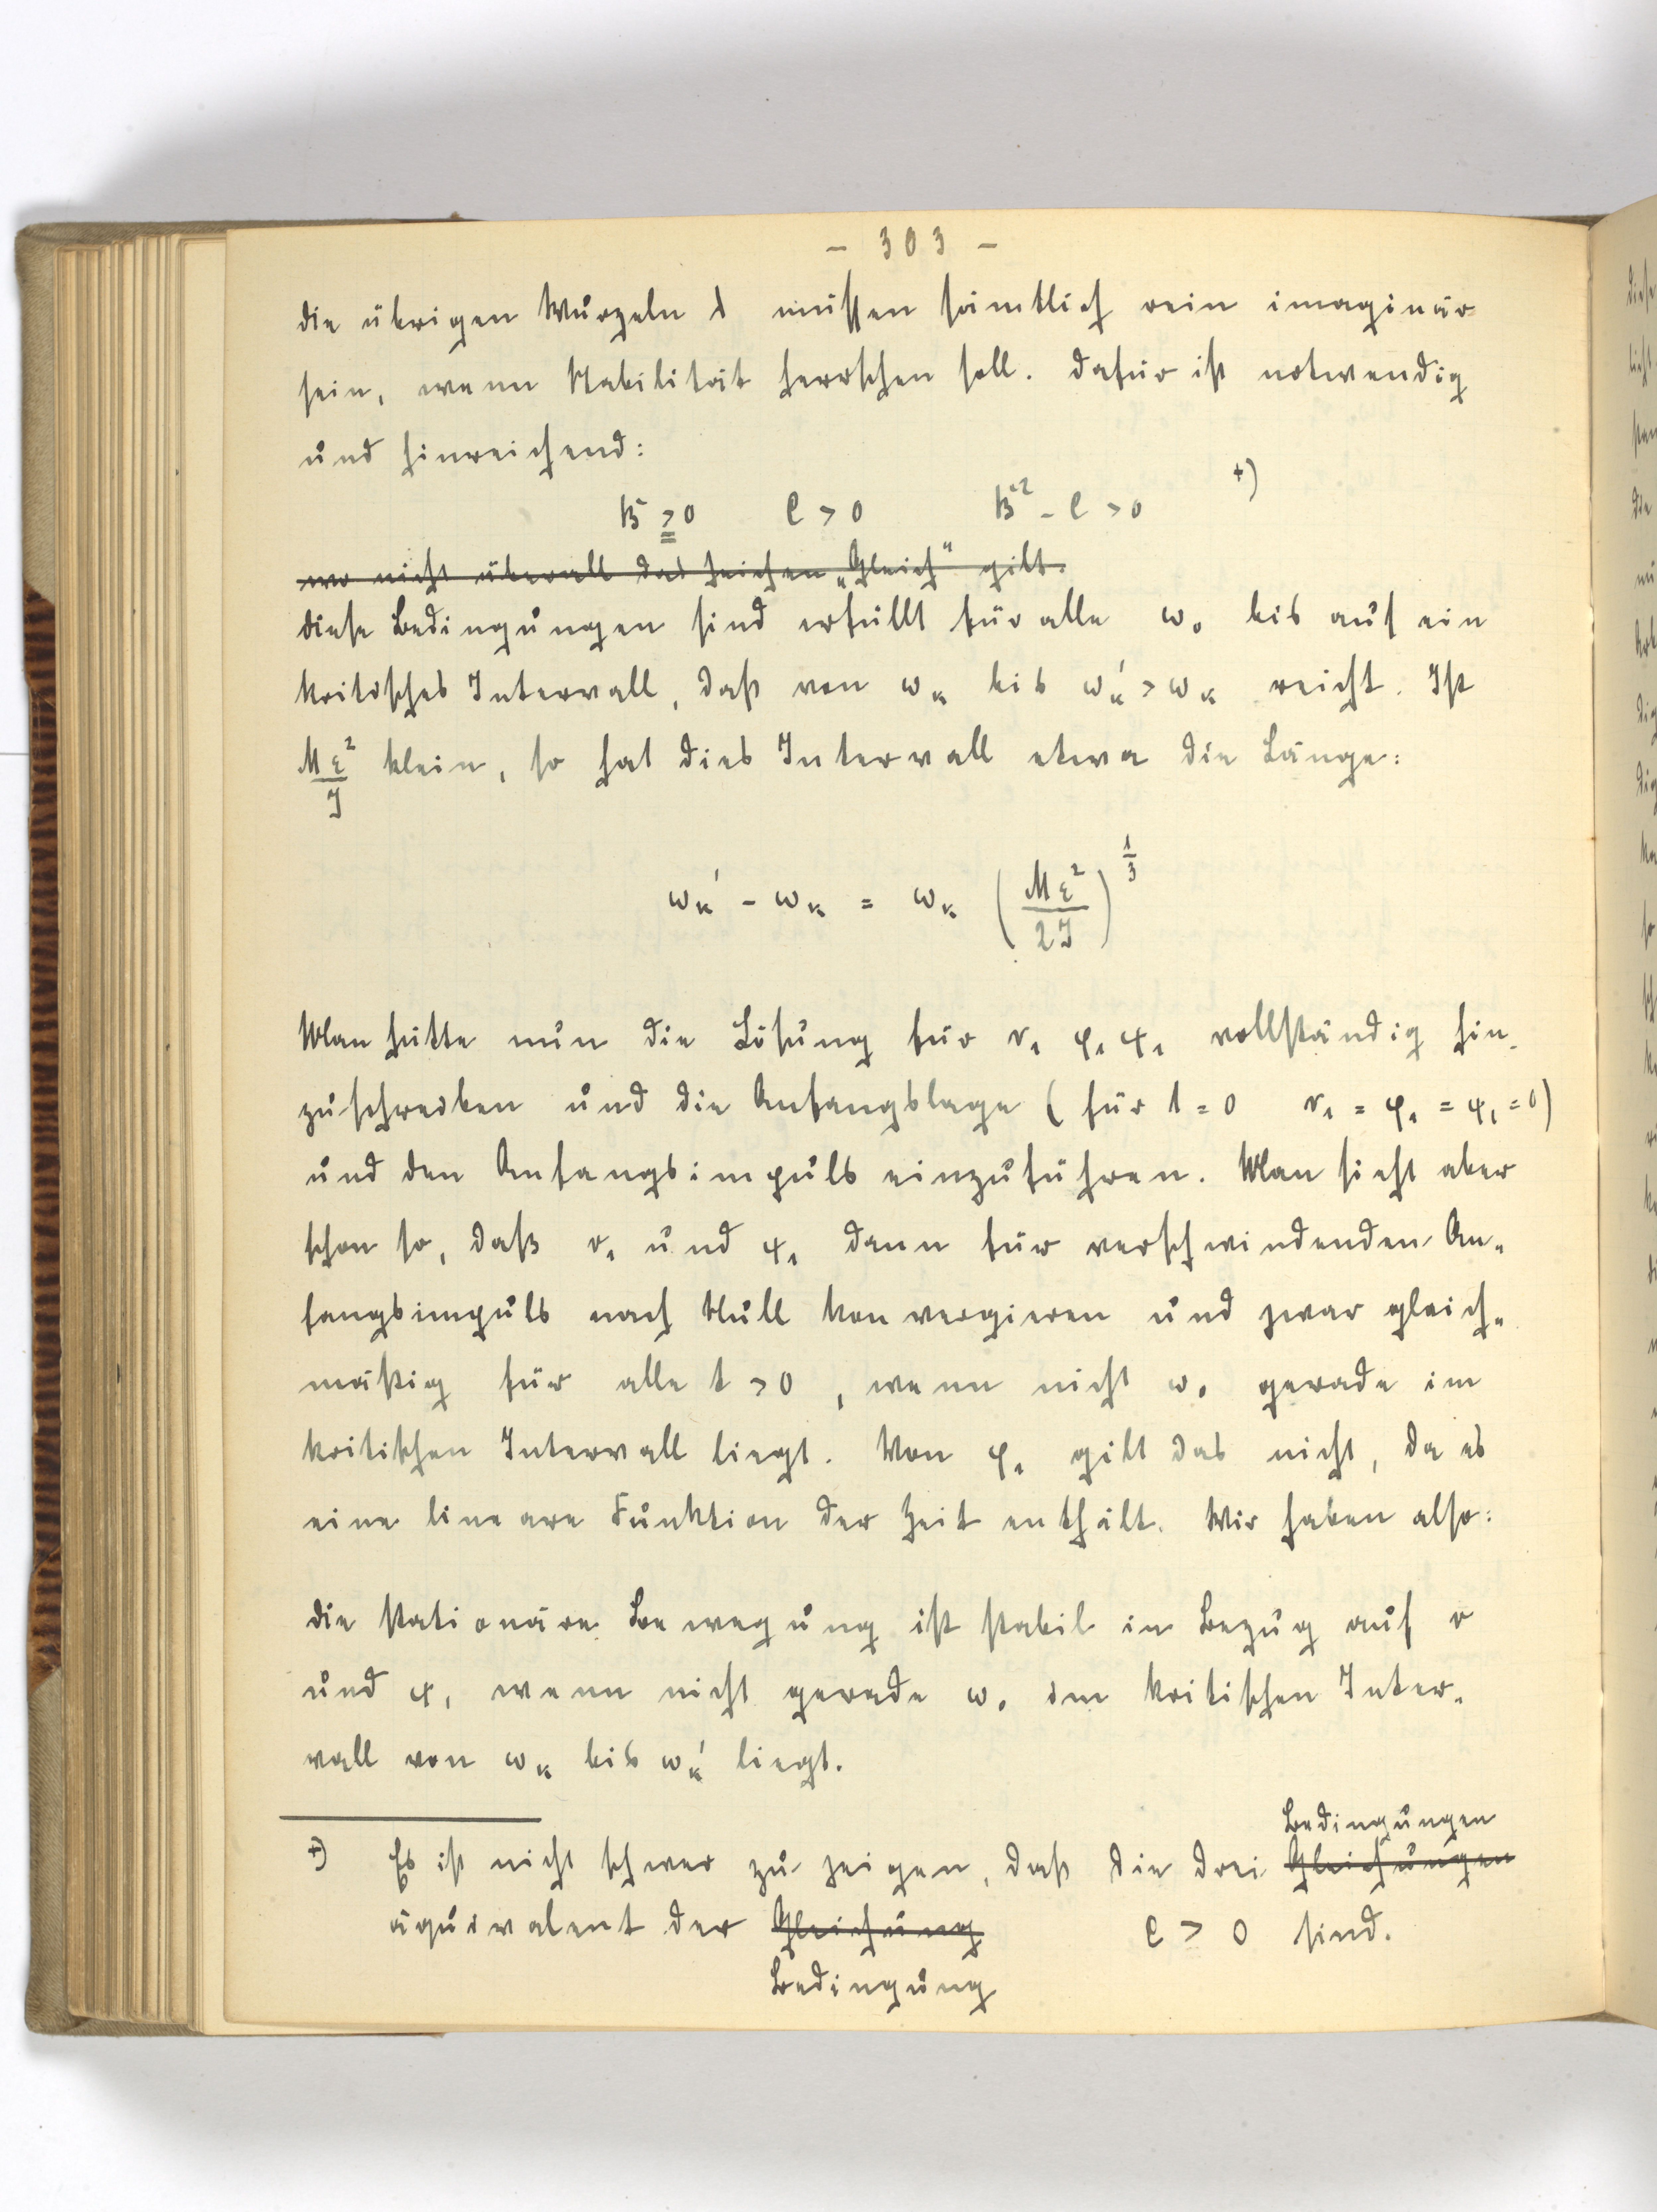 - 303 -
die übrigen Wurzeln λ müssen sämtlich rein imaginär
sein, wenn Stabilität herrschen soll. Dafür ist notwendig
und hinreichend:
B ≧ 0 C > 0 B² - C > 0 +)
wo nicht überall das Zeichen „Gleich" gilt.
diese Bedingungen sind erfüllt für alle ω₀ bis auf ein
kritisches Intervall, daß von ωₖ bis ωₖ' > ωₖ reicht. Ist
Mε²/J klein, so hat dies Intervall etwa die Länge:
ωₖ' - ωₖ = ωₖ (Mε²/2J)^1/3
Man hätte nun die Lösung für r₁ φ₁ ψ₁ vollständig hin-
zuschreiben und die Anfangslage (für t = 0 r₁ = φ₁ = ψ₁ = 0)
und den Anfangsimpuls einzuführen. Man sieht aber
schon so, daß r₁ und ψ₁ dann für verschwindenden An-
fangsimpuls nach Null konvergieren und zwar gleich-
mäßig für alle t > 0, wenn nicht ω₀ gerade im
kritischen Intervall liegt. Von φ₁ gilt das nicht, da es
eine lineare Funktion der Zeit enthält. Wir haben also:
die stationäre Bewegung ist stabil in Bezug auf r
und ψ, wenn nicht gerade ω₀ im kritischen Inter-
vall von ωₖ bis ωₖ' liegt.
Bedingungen
+) Es ist nicht schwer zu zeigen, daß die drei Gleichungen
äquivalent der Gleichung C > 0 sind.
Bedingung